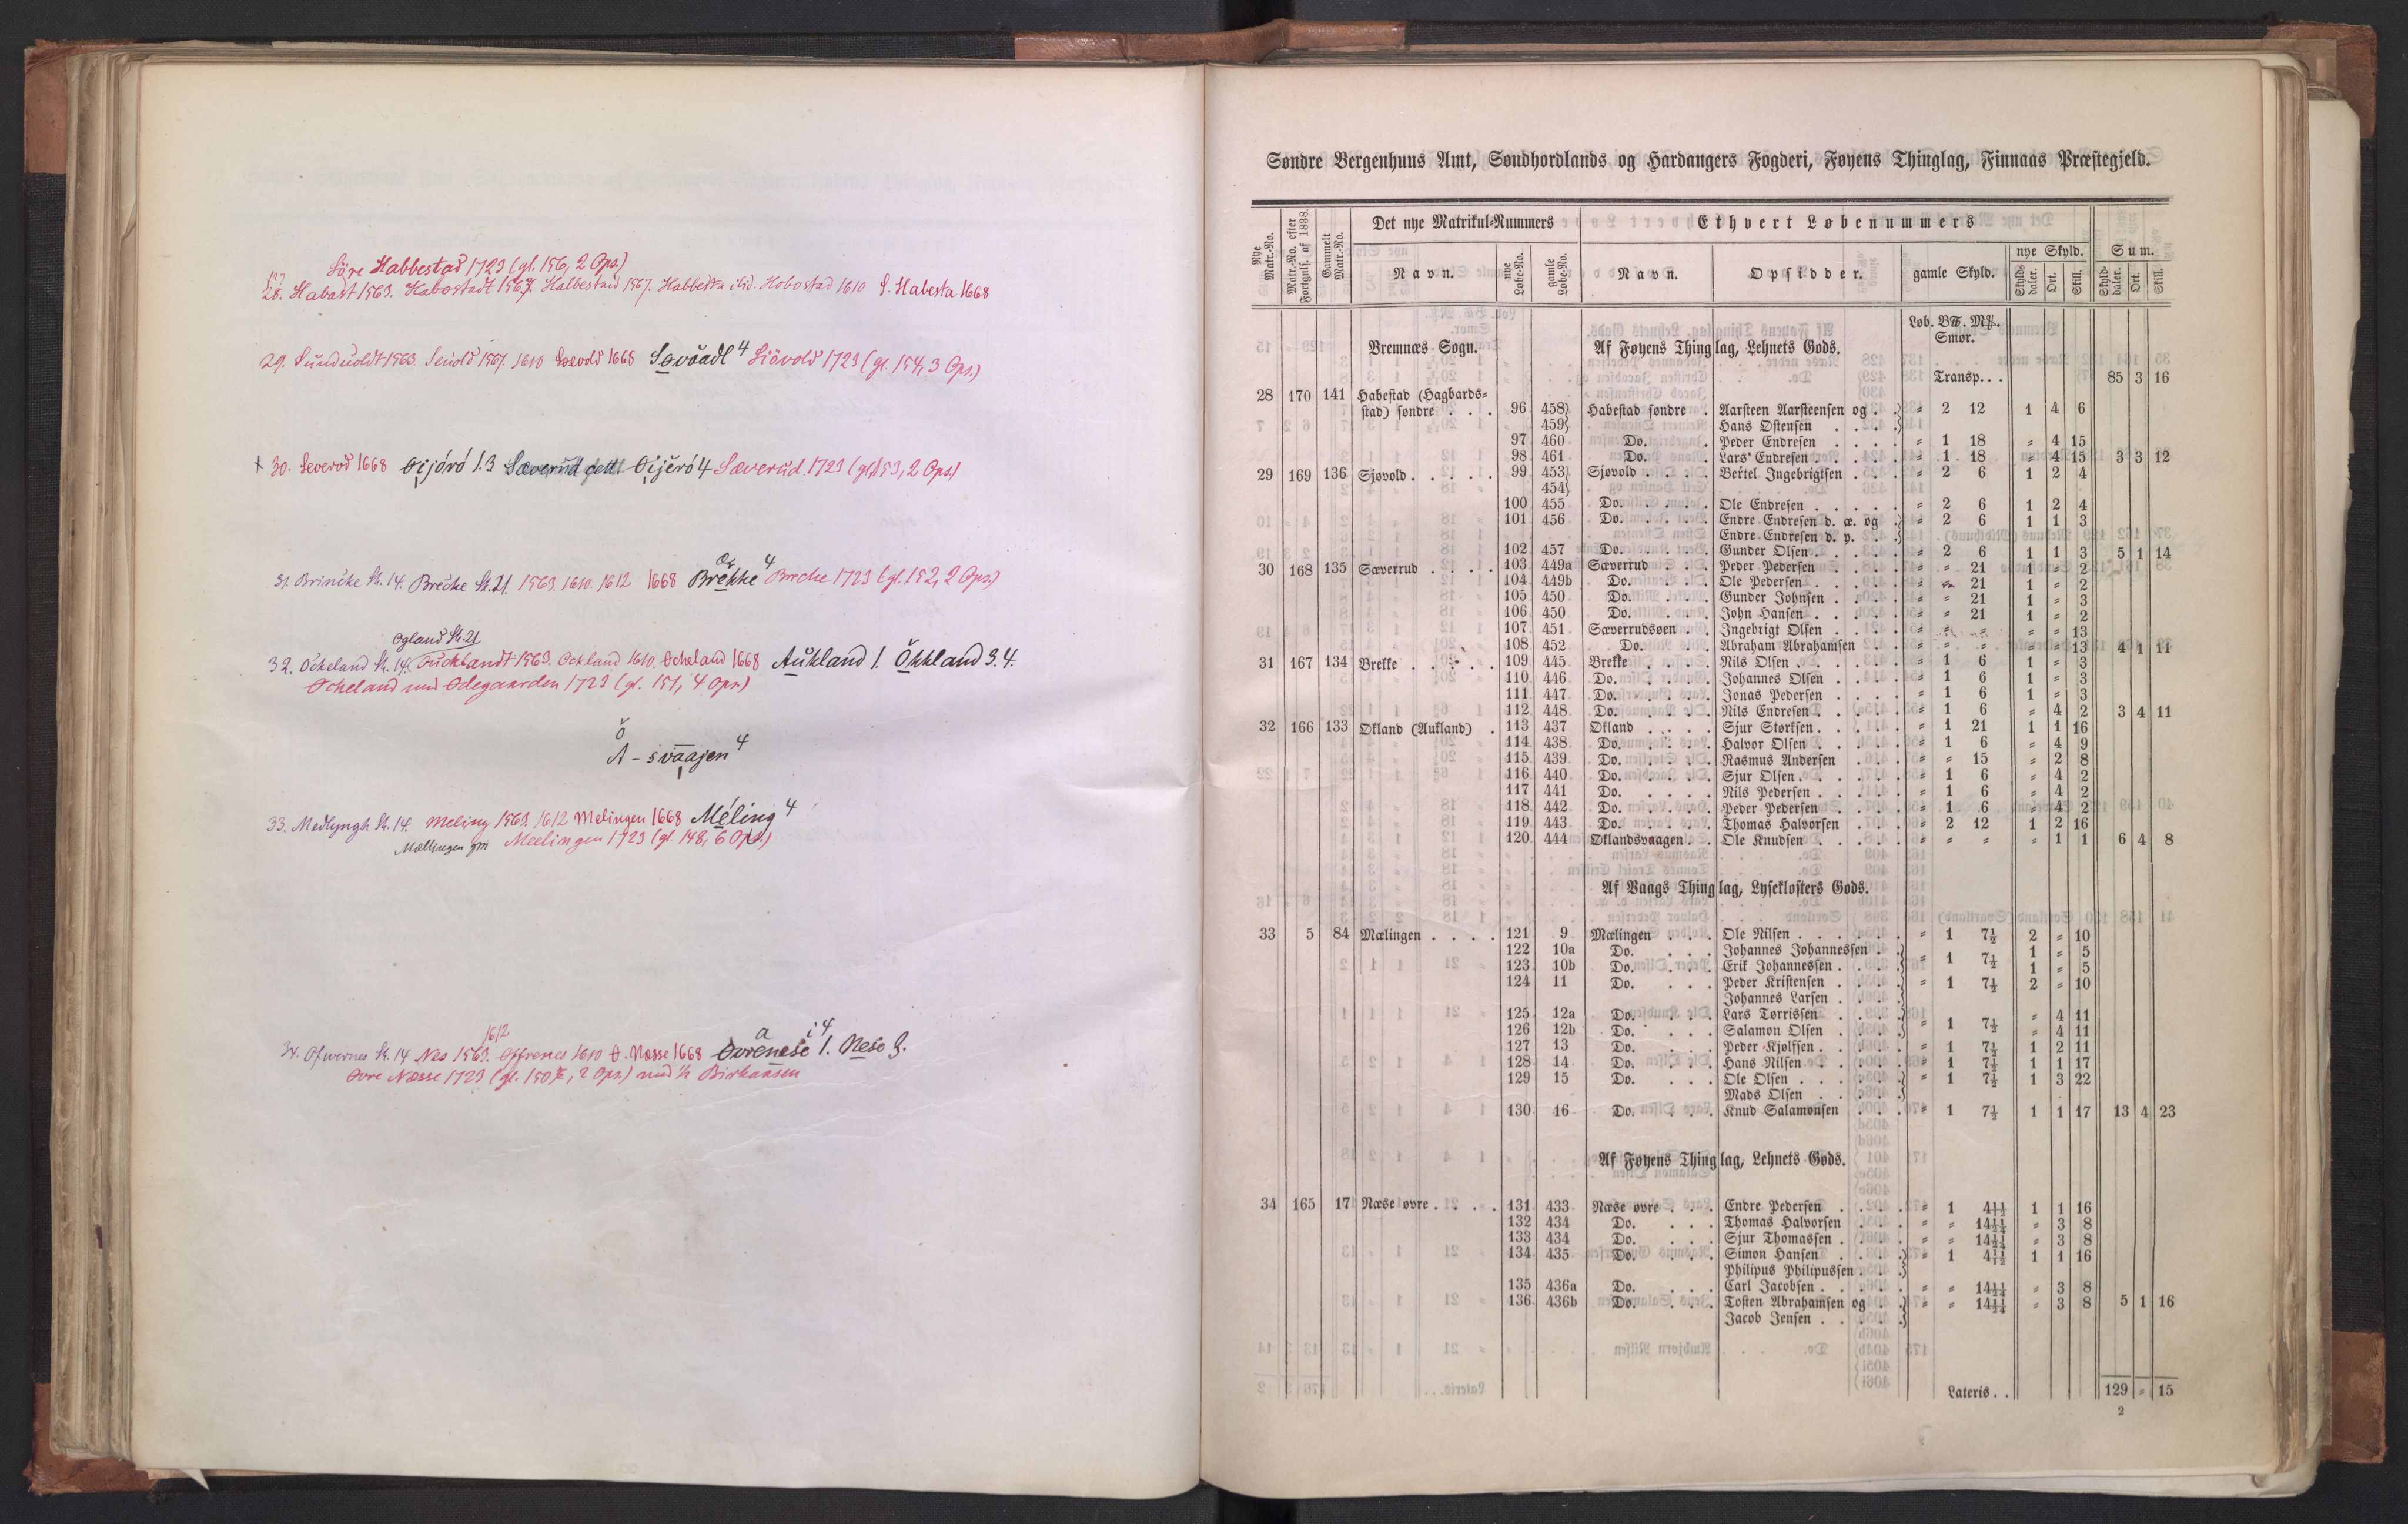 Søre Habbestad 1723 (gl. 156, 2 Ops.)
28. Habast 1563. Habostadt 1567. Halbestad 1567. Habbesta ibid. Hobostad 1610 S. Habesta 1668
29. 1563. 1567. 1610 Søevold 1668 Søvåadl 4 Siövold 1723 (gl. 154, 3 Ops.)
30. Severød 1668 1.3 4 Sæverud 1723 (gl. 153, 2 Ops.)
31. Brincke St. 14. Brecke St. 21. 1563. 1610. 1612 1668 Brekke 4 Breche 1723 (gl. 152, 2 Ops.)
Ogland St. 21
32. Ockeland St. 14. 1563. Ockland 1610. Øcheland 1668 Aukland 1. Økkland 3.4.
Øcheland med Ødegaarden 1723 (gl. 151, 4 Ops.)
4
33. Medlyngh St. 14. Meling 1563. 1612 Melingen 1668 Méling 4
Mællingen Meelingen 1723 (gl. 148, 6 Ops.)
1612
34. Ofwernes St. 14 Nes 1563. Offrenes 1610 Ø. Næsse 1668 Øvrenese 1. Nese 3.
Øvre Næsse 1723 (gl. 150, 2 Ops.) med ½ Birkaasen
Søndre Bergenhuus Amt, Søndhordlands og Hardangers Fogderi, Føyens Thinglag, Finnaas Præstegjeld.
Nye Matr.-No. Matr.-No. efter Fortegnif. af 1838. Gammelt Matr.-No. Det nye Matrikul-Nummers Ethvert Løbenummers
Navn. nye Løbe-No. gamle Løbe-No. Navn. Opsidder. gamle Skyld. nye Skyld. Sum.
Skylddaler. Ort. Skill. Skylddaler. Ort. Skill.
Løb. B℔. M℔.
Smør.
Bremnæs Sogn. Af Føyens Thinglag, Lehnets Gods.
Transp. . . 85 3 16
28 170 141 Habestad (Hagbards-
stad) søndre . . . 96 458} Habestad søndre . Aarsteen Aarsteensen og . .} " 2 12 1 4 6
459} Hans Ostensen . . . .}
97 460 Do. . Peder Endresen . . . . " 1 18 " 4 15
98 461 Do. . Lars Endresen . . . . " 1 18 " 4 15 3 3 12
29 169 136 Sjøvold . . . . . 99 453} Sjøvold . . . . Bertel Ingebrigtsen . . . " 2 6 1 2 4
454}
100 455 Do. . . . . Ole Endresen . . . . . " 2 6 1 2 4
101 456 Do. . . . . Endre Endresen d. æ. og .} " 2 6 1 1 3
Endre Endresen d. y. . .}
102 457 Do. . . . . Gunder Olsen . . . . . " 2 6 1 1 3 5 1 14
30 168 135 Sæverrud . . . . 103 449a Sæverrud . . . Peder Pedersen . . . . " " 21 1 " 2
104 449b Do. . . . Ole Pedersen . . . . . " " 21 1 " 2
105 450 Do. . . . Gunder Johnsen . . . . " " 21 1 " 3
106 450 Do. . . . John Hansen . . . . . " " 21 1 " 2
107 451 Sæverrudsøen . . Ingebrigt Olsen . . . . " " " " " 13
108 452 Do. . . Abraham Abrahamsen . . . " " " " " 13 4 1 11
31 167 134 Brekke . . . . . 109 445 Brekke . . . . Nils Olsen . . . . . . " 1 6 1 " 3
110 446 Do. . . . . Johannes Olsen . . . . " 1 6 1 " 3
111 447 Do. . . . . Jonas Pedersen . . . . " 1 6 1 " 3
112 448 Do. . . . . Nils Endresen . . . . . " 1 6 " 4 2 3 4 11
32 166 133 Økland (Aukland) . 113 437 Økland . . . . Sjur Størksen . . . . . " 1 21 1 1 16
114 438 Do. . . . . Halvor Olsen . . . . . " 1 6 " 4 9
115 439 Do. . . . . Rasmus Andersen . . . " " 15 " 2 8
116 440 Do. . . . . Sjur Olsen . . . . . . " 1 6 " 4 2
117 441 Do. . . . . Nils Pedersen . . . . . " 1 6 " 4 2
118 442 Do. . . . . Peder Pedersen . . . . " 1 6 " 4 2
119 443 Do. . . . . Thomas Halvorsen . . . " 2 12 1 2 16
120 444 Øklandsvaagen . . Ole Knudsen . . . . . " " " " 1 1 6 4 8
Af Vaags Thinglag, Lyseklosters Gods.
33 5 84 Mælingen . . . . 121 9 Mælingen . . . Ole Nilsen . . . . . . " 1 7½ 2 " 10
122 10a Do. . . . Johannes Johannessen . .} " 1 7½ 1 " 5
123 10b Do. . . . Erik Johannessen . . . .} 1 " 5
124 11 Do. . . . Peder Kristensen . . . .} " 1 7½ 2 " 10
Johannes Larsen . . . .}
125 12a Do. . . . Lars Tørrissen . . . .} " 1 7½ " 4 11
126 12b Do. . . . Salamon Olsen . . . .} " 4 11
127 13 Do. . . . Peder Kjølfsen . . . . . " 1 7½ 1 2 11
128 14 Do. . . . Hans Nilsen . . . . . " 1 7½ 1 1 17
129 15 Do. . . . Ole Olsen . . . . . .} " 1 7½ 1 3 22
Mads Olsen . . . . .}
130 16 Do. . . . Knud Salamonsen . . . " 1 7½ 1 1 17 13 4 23
Af Føyens Thinglag, Lehnets Gods.
34 165 17 Næse øvre . . . . 131 433 Næse øvre . . . Endre Pedersen . . . . " 1 4 11/12 1 1 16
132 434 Do. . . . Thomas Halvorsen . . . " " 14 11/24 " 3 8
133 434 Do. . . . Sjur Thomassen . . . . " " 14 11/24 " 3 8
134 435 Do. . . . Simon Hansen . . . .} " 1 4 11/12 1 1 16
Philipus Philipussen . . .}
135 436a Do. . . . Carl Jacobsen . . . . . " " 14 11/24 " 3 8
136 436b Do. . . . Tosten Abrahamsen og . .} " " 14 11/24 " 3 8 5 1 16
Jacob Jensen . . . . .}
Lateris . . 129 " 15
2